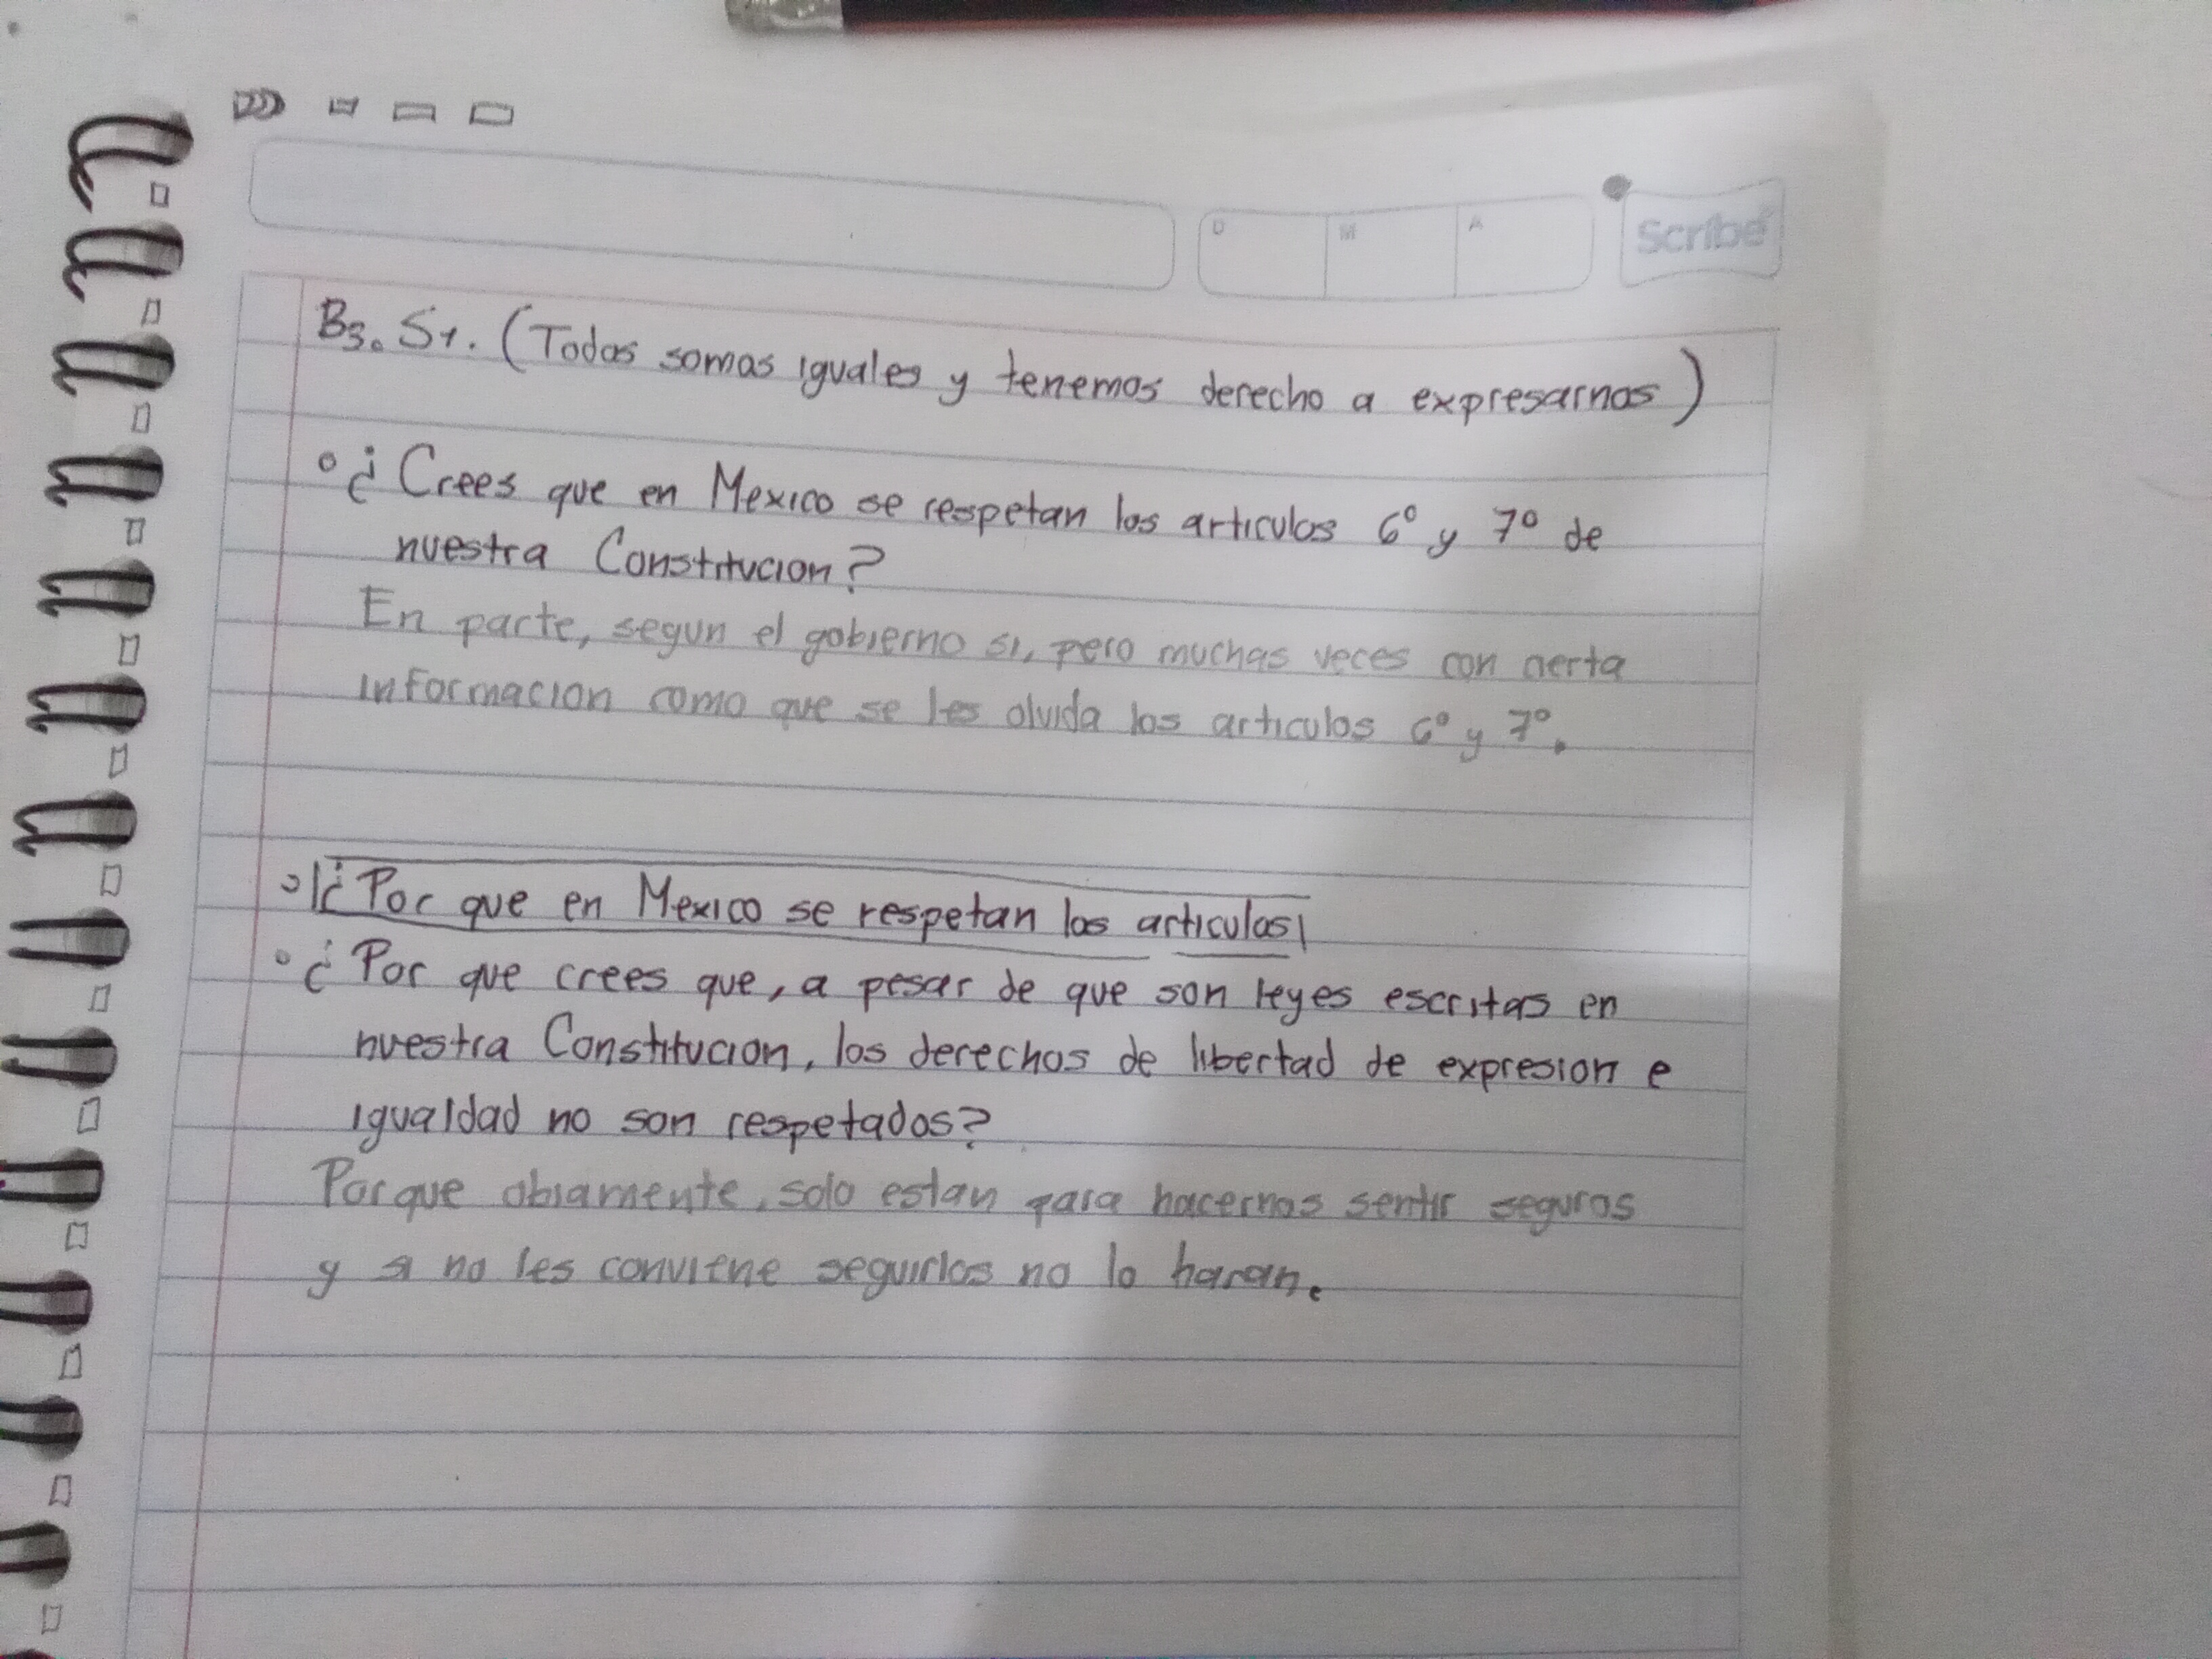 D M A Scribe
B3. S1. (Todos somos iguales y tenemos derecho a expresarnos)
° ¿Crees que en Mexico se respetan los articulos 6° y 7° de
nuestra Constitucion?
En parte, segun el gobierno si, pero muchas veces con cierta
informacion como que se les olvida los articulos 6° y 7°.
° ¿Por que en Mexico se respetan los articulos
° ¿Por que crees que, a pesar de que son leyes escritas en
nuestra Constitucion, los derechos de libertad de expresion e
igualdad no son respetados?
Porque obiamente, solo estan para hacernos sentir seguros
y si no les conviene seguirlos no lo haran.